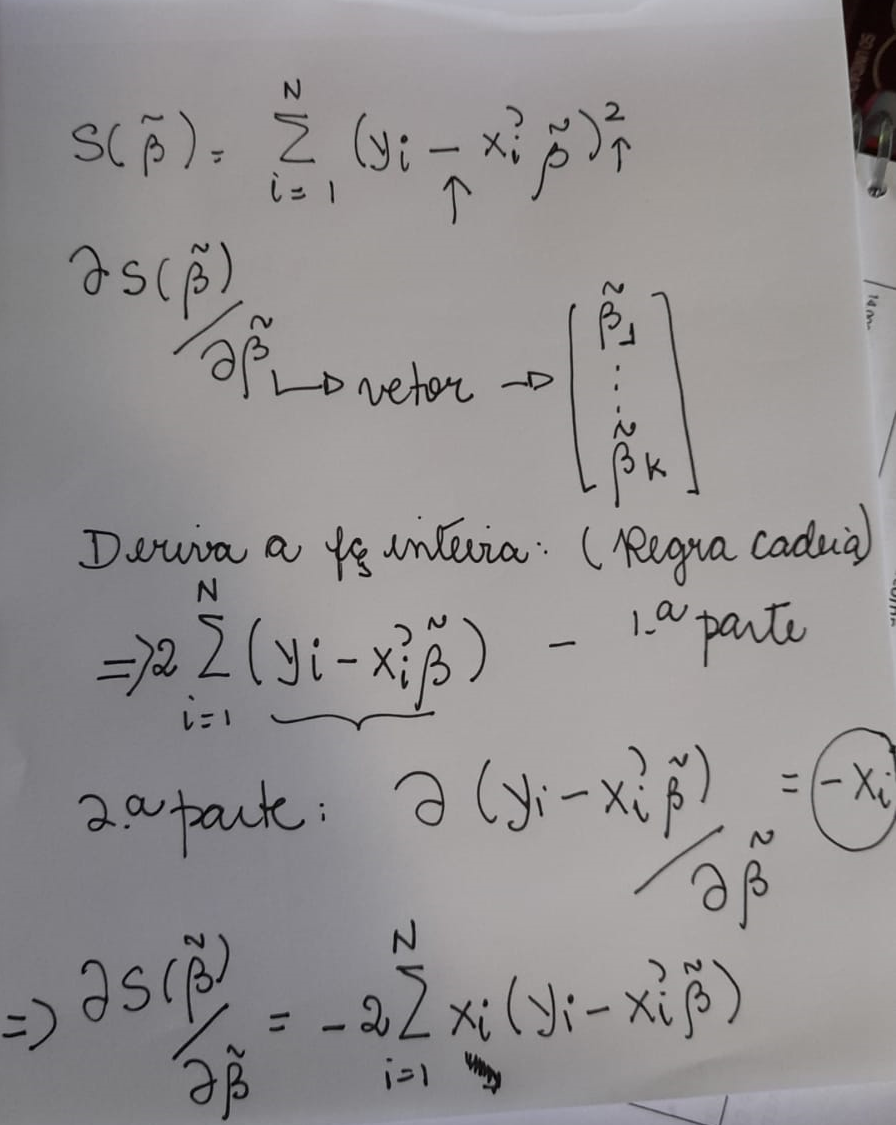 S(β̃) = Σ_{i=1}^{N} (yi − xi' β̃)² ↑
↑
∂S(β̃) / ∂β̃ ↳ vetor → [β̃1 ... β̃K]
Deriva a fç inteira: (Regra cadeia)
⇒ 2 Σ_{i=1}^{N} (yi − xi' β̃) − 1.ª parte
2.ª parte: ∂(yi − xi' β̃) / ∂β̃ = −xi
⇒ ∂S(β̃) / ∂β̃ = −2 Σ_{i=1}^{N} xi (yi − xi' β̃)